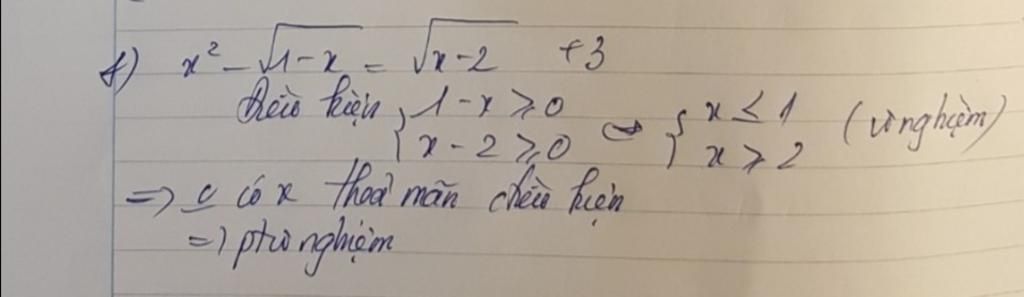 f) x² - √(1-x) = √(x-2) + 3
Điều kiện { 1-x ≥ 0 ⇔ { x ≤ 1 (vô nghiệm)
x - 2 ≥ 0 x ≥ 2
=> c có x thoả mãn điều kiện
=> ptvô nghiệm